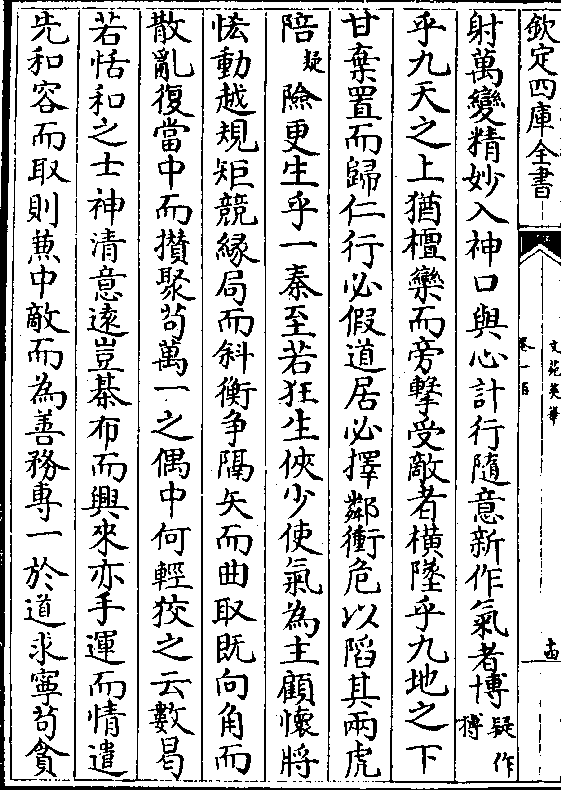 欽定四庫全書
文苑英華
卷一百
十四
射萬變精妙入神口與心計行隨意新作氣者博疑作搏
乎九天之上猶檀欒而旁擊受敵者橫墜乎九地之下
甘棄置而歸仁行必假道居必擇鄰衝危以䧟其兩虎
陪疑險更生乎一秦至若狂生俠少使氣為主顧懷將
恡動越規矩競緣局而斜衡争隔矢而曲取既向角而
散亂復當中而攢聚苟萬一之偶中何輕狡之云數曷
若恬和之士神清意逺豈棊布而興來亦手運而情遣
先和容而取則蕉中敵而為善務専一於道求寧苟貪